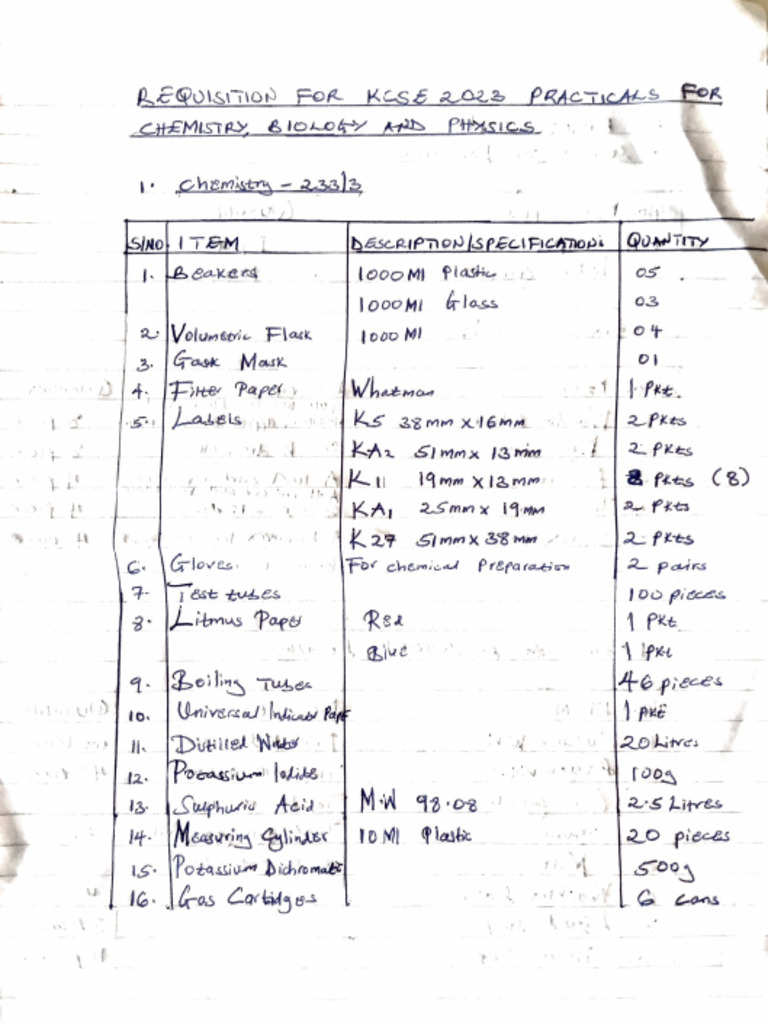 REQUISITION FOR KCSE 2023 PRACTICALS FOR
CHEMISTRY, BIOLOGY AND PHYSICS
1. Chemistry - 233/3
S/NO. ITEM DESCRIPTION/SPECIFICATION: QUANTITY
1. Beakers 1000Ml Plastic 05
1000Ml Glass 03
2. Volumetric Flask 1000Ml 04
3. Gask Mask 01
4. Filter Paper Whatman 1 Pkt.
5. Labels K5 38mm x 16mm 2 Pkts
KA2 51mm x 13mm 2 Pkts
K11 19mm x 13mm 8 Pkts (8)
KA1 25mm x 19mm 2 Pkts
K27 51mm x 38mm 2 Pkts
6. Gloves. For chemical Preparation 2 pairs
7. Test tubes 100 pieces
8. Litmus Paper Red 1 Pkt
Blue 1 Pkt
9. Boiling Tubes 46 pieces
10. Universal Indicator Pape 1 Pkt
11. Distilled Water 20 Litres
12. Potassium Iodide 100g
13. Sulphuric Acid M.W 98.08 2.5 Litres
14. Measuring Cylinder 10Ml Plastic 20 pieces
15. Potassium Dichromate 500g
16. Gas Cartidges 6 cans